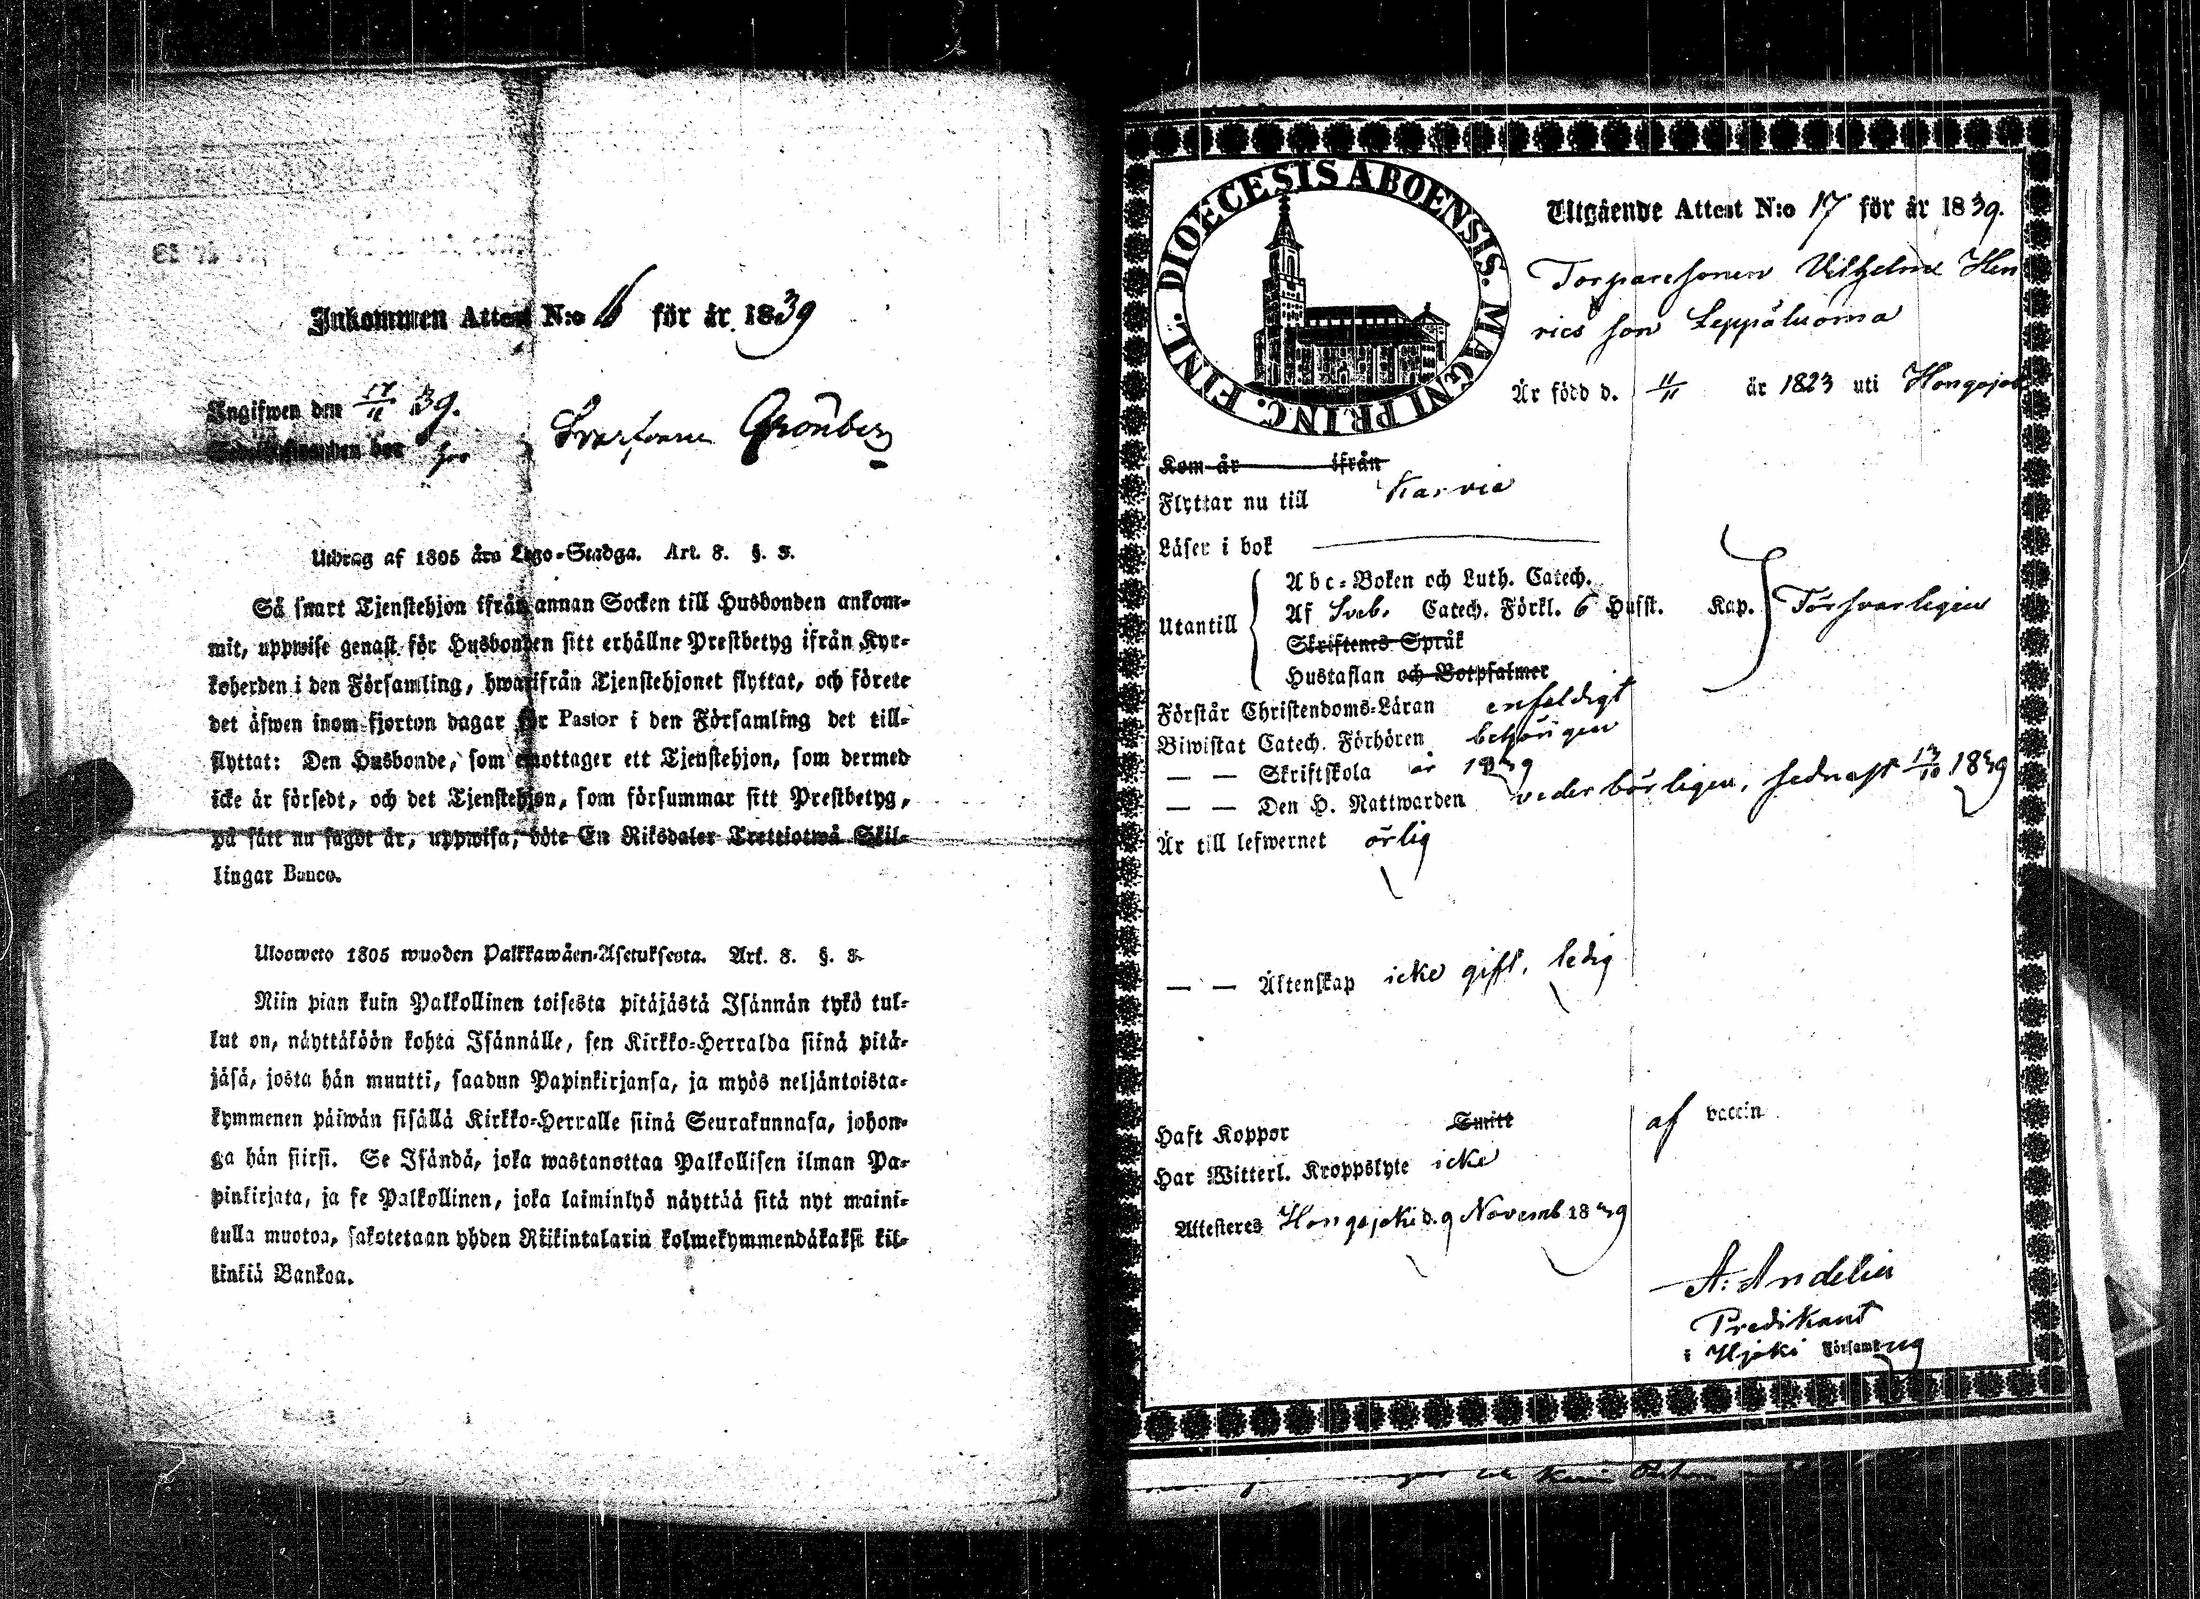 Inkommen Attest N:o för år 1839
Ingifwen den 17/11 39.
hos Grönberg
Utdrag af 1805 års Lego-Stadga. Art. 8. §. 3.
Så snart Tjenstehjon ifrån annan Socken till Husbonden ankom-
mit, uppwise genast för Husbonden sitt erhållne Prestbetyg ifrån Kyr-
koherden i den Församling, hwarifrån Tjenstehjonet flyttat, och förete
det äfwen inom fjorton dagar för Pastor i den Församling det till-
flyttat: Den Husbonde, som emottager ett Tjenstehjon, som dermed
icke är försedt, och det Tjenstehjon, som försummar sitt Prestbetyg,
på sätt nu sagdt är, uppwisa, böte En Riksdaler Trettiotwå Skil-
lingar Banco.
Ulosweto 1805 wuoden Palkkawäen-Asetuksesta. Art. 8. §. 3.
Niin pian kuin Palkollinen toisesta pitäjästä Isännän tykö tul-
lut on, näyttäköön kohta Isännälle, sen Kirkko-Herralda siinä pitä-
jäsä, josta hän muutti, saadun Papinkirjansa, ja myös neljäntoista-
kymmenen päiwän sisällä Kirkko-Herralle siinä Seurakunnasa, johon-
ga hän siirsi. Se Isändä, joka wastanottaa Palkollisen ilman Pa-
pinkirjata, ja se Palkollinen, joka laiminlyö näyttää sitä nyt maini-
tulla muotoa, sakotetaan yhden Riikintalarin kolmekymmendäkaksi kil-
linkiä Bankoa.
DIOECESIS ABOENSIS. MAGNI PRINC. FINL.
Utgående Attest N:o 17 för år 1839.
Torparesonen Vilhelm Hen
rics son Leppäluoma
Är född d. 11/11 år 1823 uti Hongojoki
Kom år ifrån
Flyttar nu till Karvia
Läser i bok
Utantill
Abc-Boken och Luth. Catech.
Af Sveb. Catech. Förkl. 6 Hufst. Kap. Försvarligen
Skriftenes Språk
Hustaflan och Botpsalmer
Förstår Christendoms-Läran enfaldigt
Biwistat Catech. Förhören behörigen
— — Skriftskola år 1839
— — Den H. Nattwarden vederbörligen, sednast 13/10 1839
Är till lefwernet ärlig
— — Äktenskap icke gift, ledig
Haft Koppor Smitt af vaccin
Har Witterl. Kroppslyte icke
Attesteres Hongojoki d. 9 Novemb 1839
A: Andelin
Predikant
i Hjoki Församling